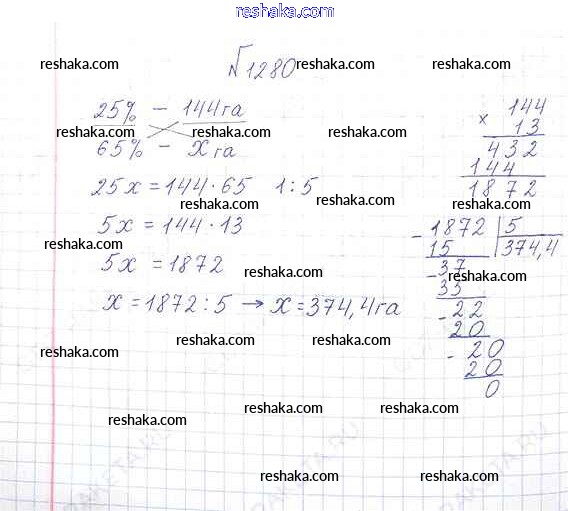 reshaka.com
№1280
reshaka.com reshaka.com reshaka.com
25% — 144га
reshaka.com reshaka.com reshaka.com
65% — x га
25x = 144 · 65 | : 5
reshaka.com
5x = 144 · 13
reshaka.com
5x = 1872
reshaka.com
x = 1872 : 5 → x = 374,4га
reshaka.com reshaka.com
reshaka.com reshaka.com
reshaka.com reshaka.com
reshaka.com reshaka.com
× 144
13
432
144
1872
reshaka.com
- 1872 | 5
15 374,4
- 37
reshaka.com
33
- 22
20
- 20
20
0